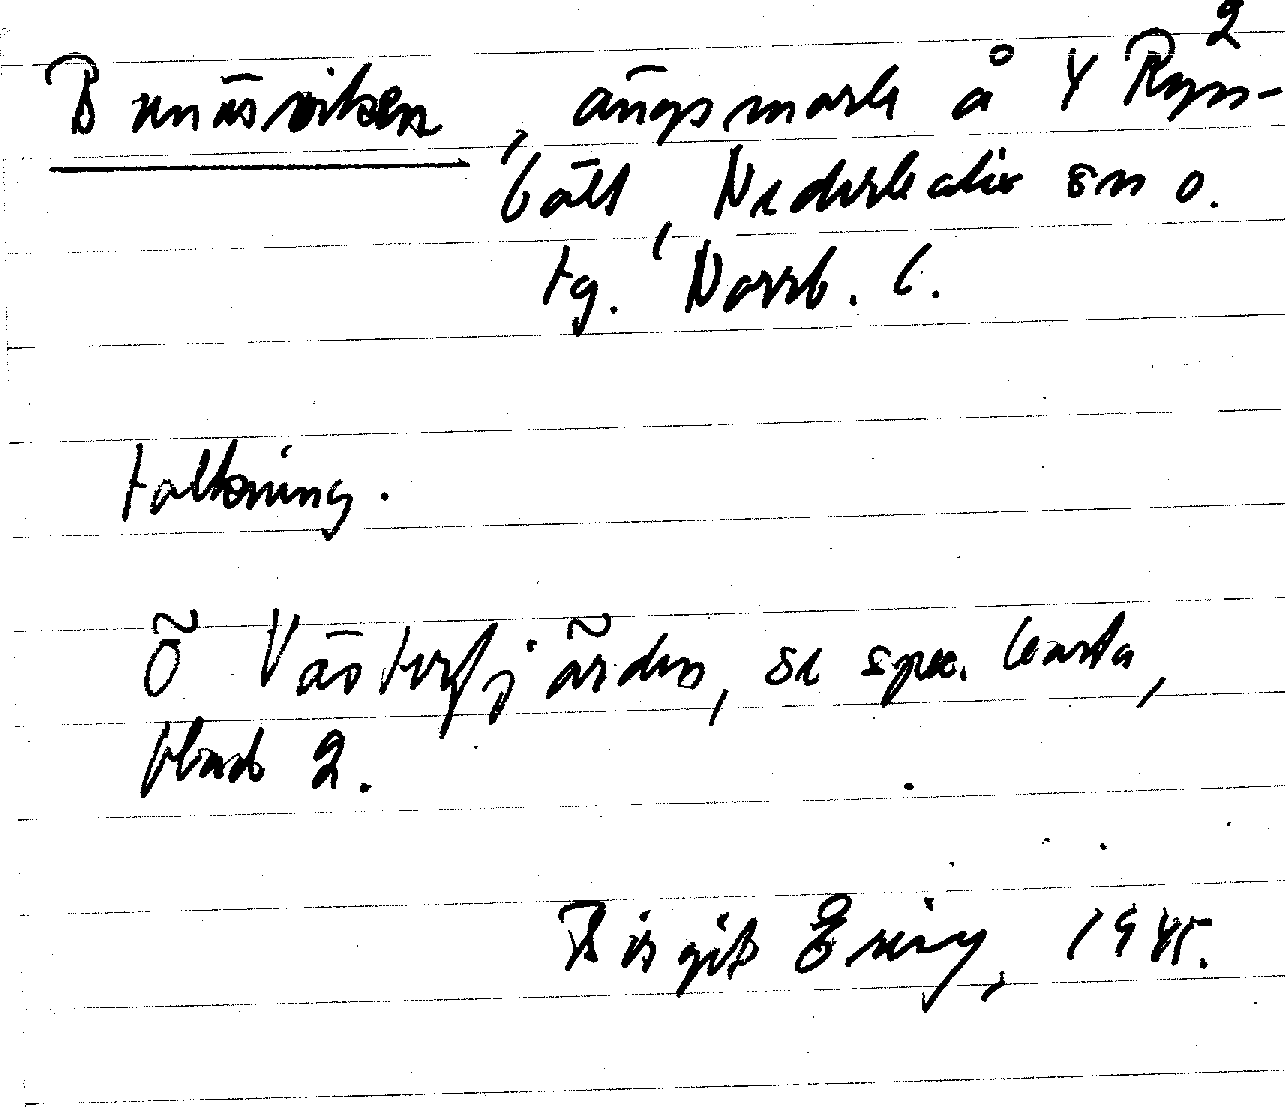 Bunäsviken, ängsmark å Y Ryss-²
bält, Nederkalix sn o.
tg. Norrb. l.
tolkning.
Ö Västerfjärden, se spec. karta,
blad 2.
Birgit Ering, 1945.